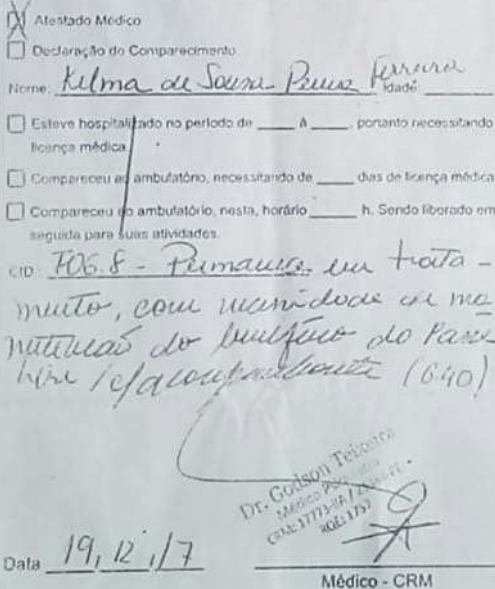 Atestado Médico
Declaração de Comparecimento
Nome: Kelma de Sousa Ferreira Idade:
Esteve hospitalizado no período de ____ à ____, portanto necessitando
licença médica.
Compareceu ao ambulatório, necessitando de ____ dias de licença médica
Compareceu ao ambulatório, nesta, horário ____ h. Sendo liberado em
seguida para suas atividades.
CID F06.8 - Permanece em trata-
mento, com necessidade de ma
nutenção do benefício do Passe
livre c/ acompanhante (G40)
Dr. Godson Teixeira
Médico
CRM: 17773-BA
RQE: 1757
Data 19, 12, 17
Médico - CRM